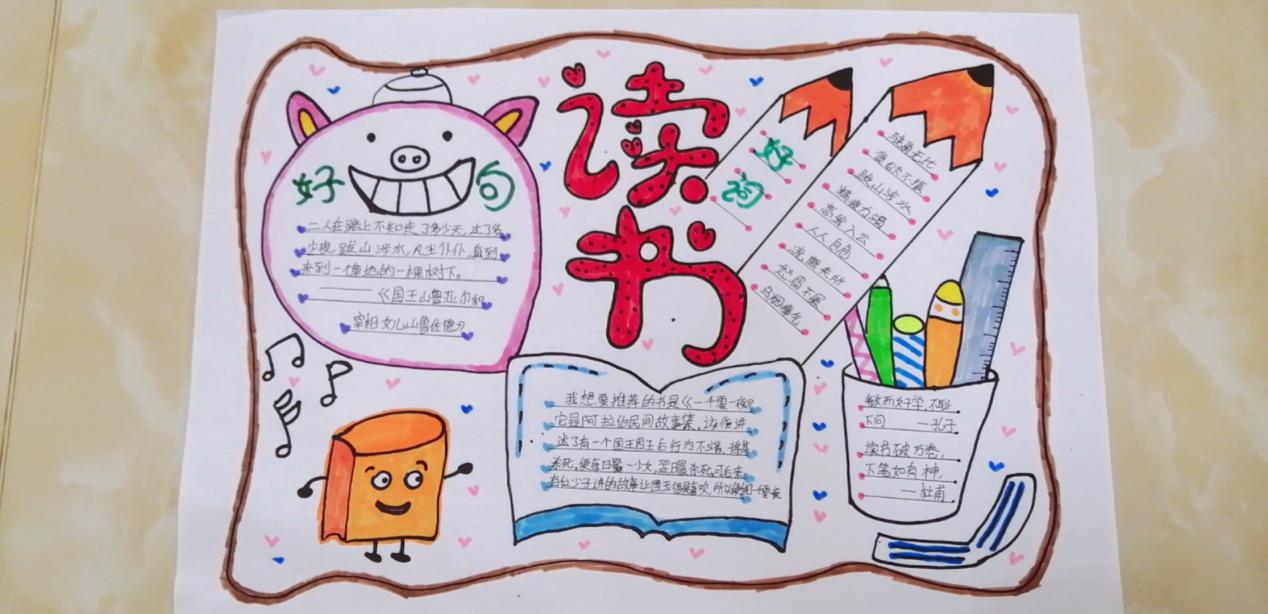 读书
好句
二人在路上不知走了多少天,过了多
少夜,跋山涉水,风尘仆仆,直到
来到一佳地的一棵树下。
——《国王山鲁亚尔和
宰相女儿山鲁佐德》
好词
骁勇无比
跋山涉水
精疲力竭
高耸入云
人人自危
流离失所
忍气不
乌烟瘴气
我想要推荐的书是《一千零一夜》
它是阿拉伯民间故事集,该作讲
述了有一个国王因王后行为不端,将其
杀死,便每日娶一少女,翌日晨杀死,可后来
讲的故事让国王很喜欢,所以一千零一夜
敏而好学,不耻
下问 —孔子
读书破万卷,
下笔如有神,
—杜甫